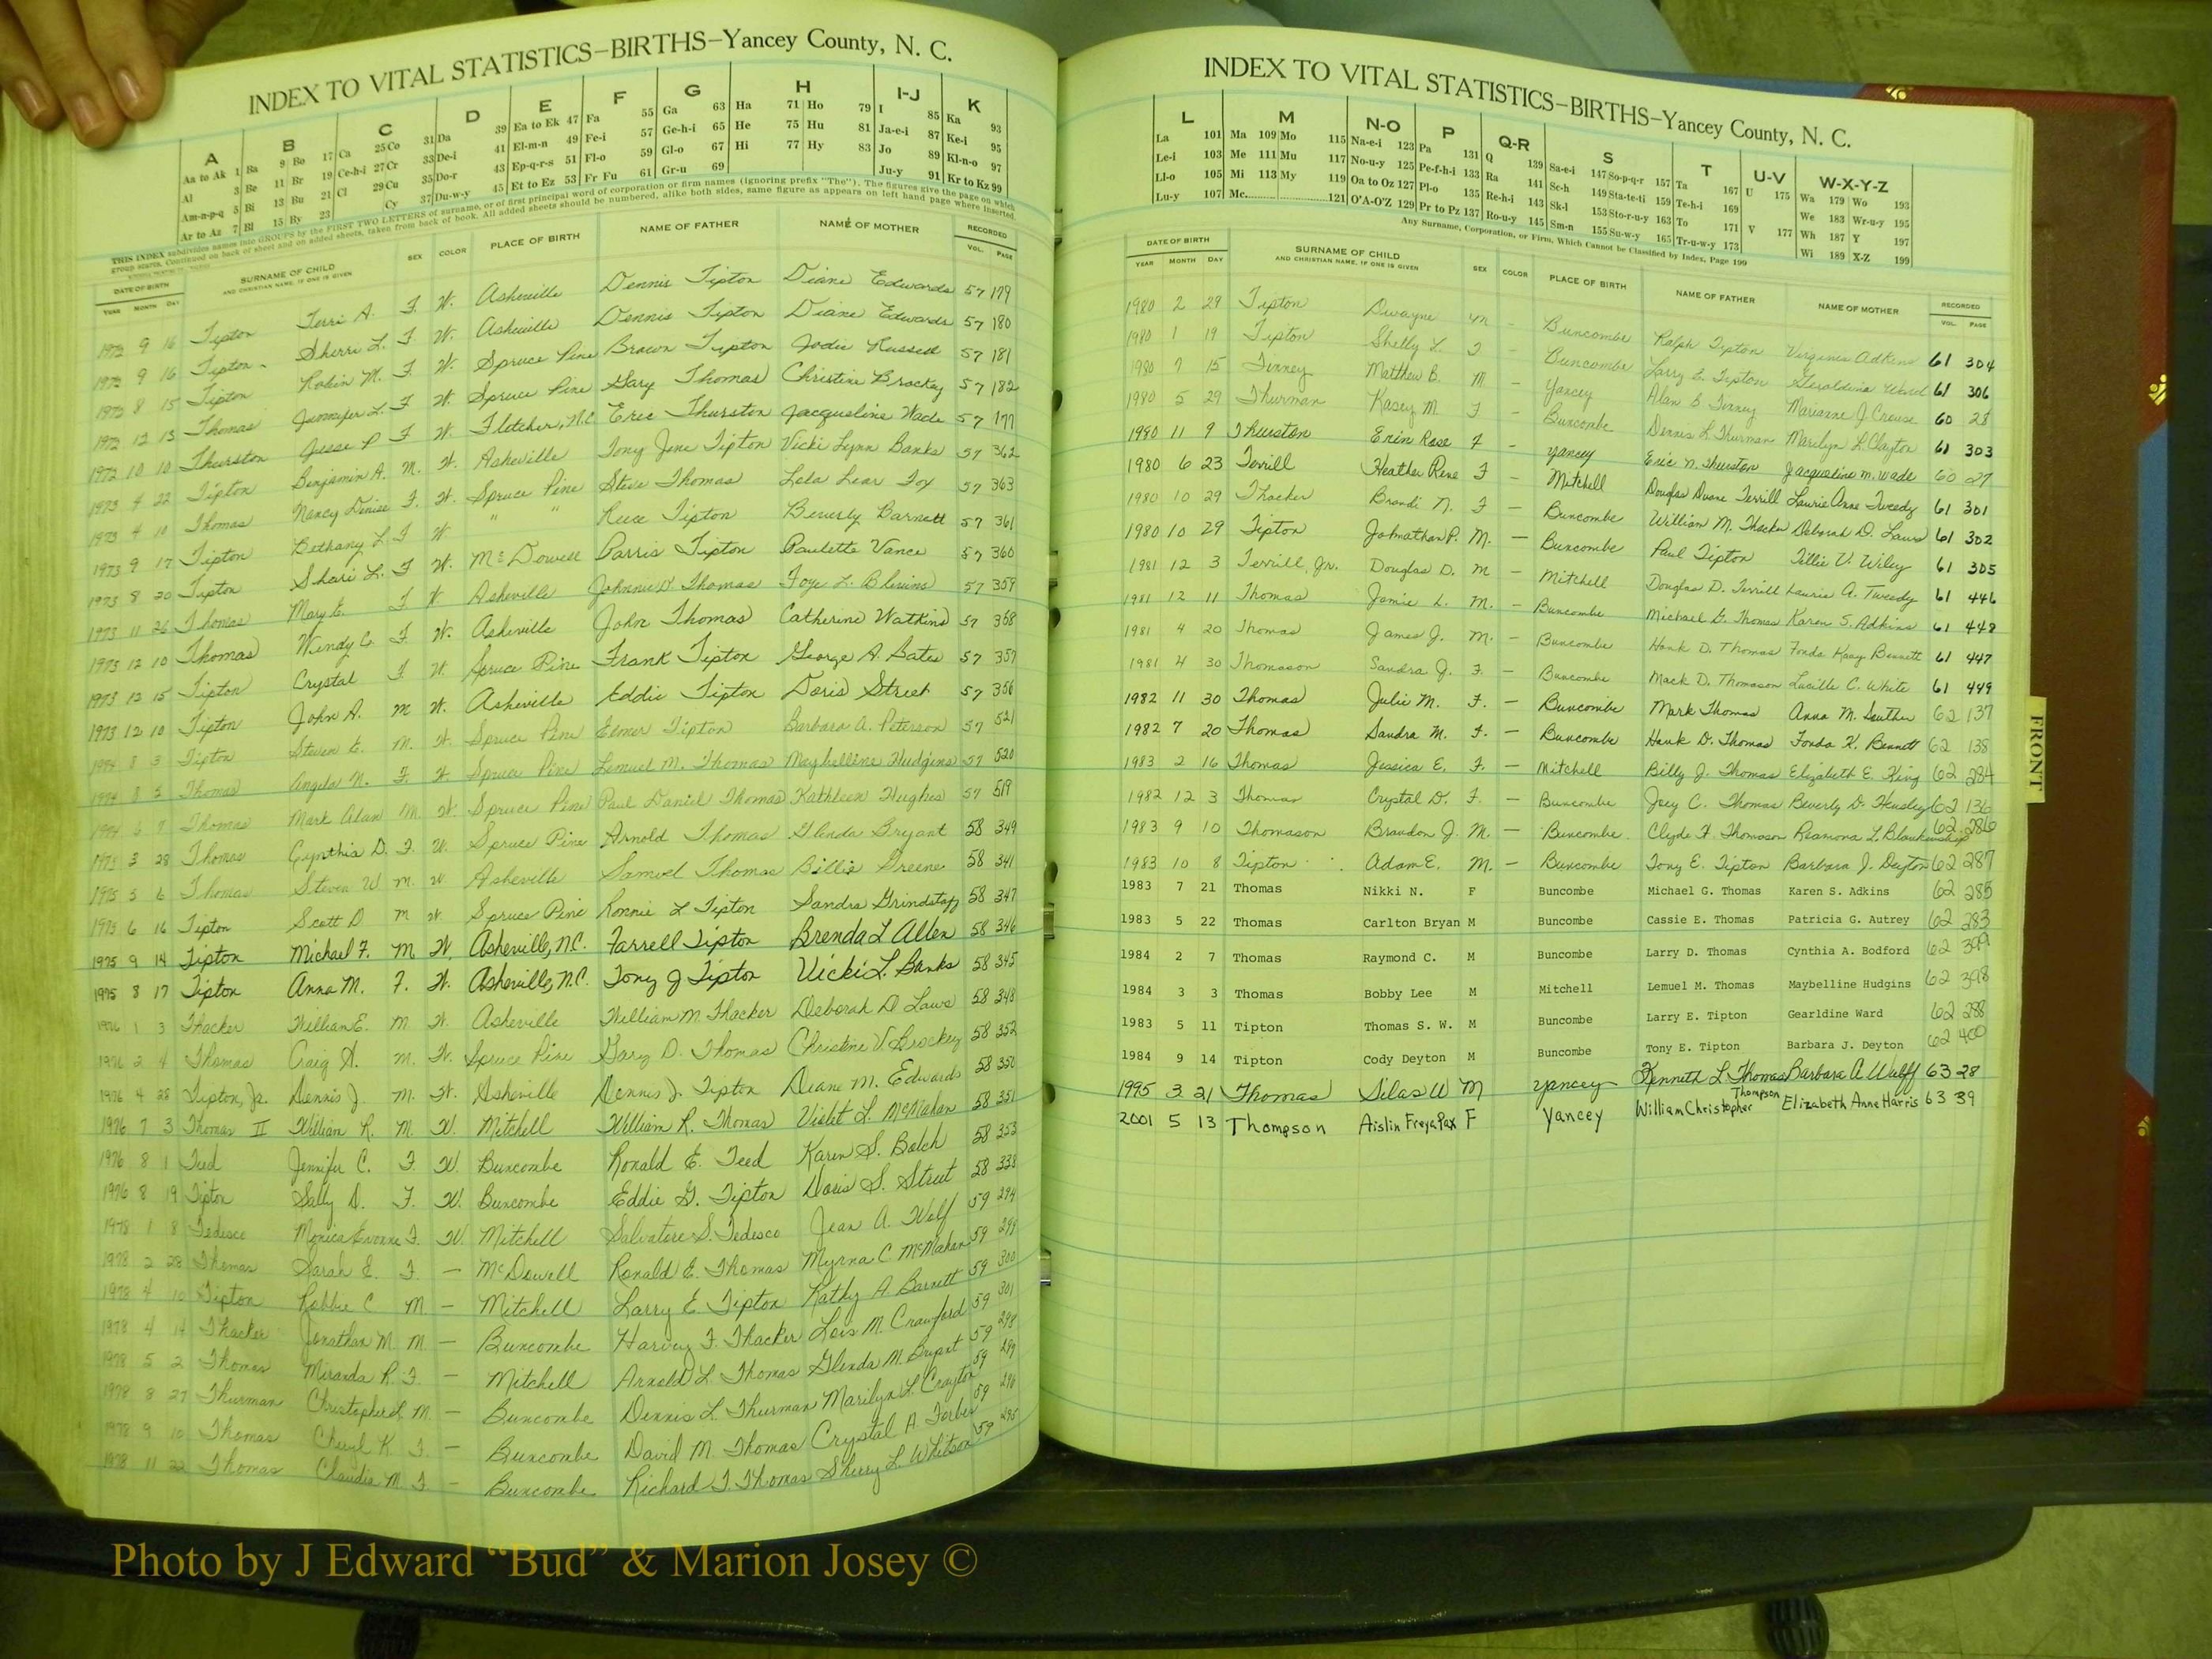 INDEX TO VITAL STATISTICS—BIRTHS—Yancey County, N. C.
A B C D E F G H I-J K
Aa to Ak 1 Ba 9 Bo 17 Ca 25 Co 31 Da 39 Ea to Ek 47 Fa 55 Ga 63 Ha 71 Ho 79 I 85 Ka 93
Al 3 Be 11 Br 19 Ce-h-i 27 Cr 33 De-i 41 El-m-n 49 Fe-i 57 Ge-h-i 65 He 75 Hu 81 Ja-e-i 87 Ke-i 95
Am-n-p-q 5 Bi 13 Bu 21 Cl 29 Cu 35 Do-r 43 Ep-q-r-s 51 Fl-o 59 Gl-o 67 Hi 77 Hy 83 Jo 89 Kl-n-o 97
Ar to Az 7 Bl 15 By 23 Cy 37 Du-w-y 45 Et to Ez 53 Fr Fu 61 Gr-u 69 Ju-y 91 Kr to Kz 99
THIS INDEX subdivides names into GROUPS by the FIRST TWO LETTERS of surname, or of first principal word of corporation or firm names (ignoring prefix "The"). The figures give the page on which
group starts. Continued on back of sheet and on added sheets, taken from back of book. All added sheets should be numbered, alike both sides, same figure as appears on left hand page where inserted.
DATE OF BIRTH SURNAME OF CHILD SEX COLOR PLACE OF BIRTH NAME OF FATHER NAME OF MOTHER RECORDED
YEAR MONTH DAY AND CHRISTIAN NAME, IF ONE IS GIVEN VOL. PAGE
1972 9 16 Tipton Terri A. F. W. Asheville Dennis Tipton Diane Edwards 57 179
1972 9 16 Tipton Sherri L. F. W. Asheville Dennis Tipton Diane Edwards 57 180
1972 8 15 Tipton Robin M. F. W. Spruce Pine Brown Tipton Jodie Russell 57 181
1972 12 13 Thomas Jennifer L. F W. Spruce Pine Gary Thomas Christine Brockey 57 182
1972 10 10 Thurston Jesse P F W. Fletcher, N.C. Eric Thurston Jacqueline Wade 57 177
1973 4 22 Tipton Benjamin A. M. W. Asheville Tony Jene Tipton Vicki Lynn Banks 57 362
1973 4 11 Thomas Nancy Denise F. W. Spruce Pine Steve Thomas Lela Lear Fox 57 363
1973 9 17 Tipton Bethany L F W " " Reece Tipton Beverly Barnett 57 361
1973 8 20 Tipton Shari L. F W. McDowell Parris Tipton Paulette Vance 57 360
1973 11 26 Thomas Mary E. F. W. Asheville Johnnie D. Thomas Foye L. Blevins 57 359
1973 12 10 Thomas Wendy C. F W. Asheville John Thomas Catherine Watkins 57 358
1973 12 15 Tipton Crystal F W. Spruce Pine Frank Tipton George A. Bates 57 357
1973 12 10 Tipton John A. M W. Asheville Eddie Tipton Doris Street 57 356
1974 8 3 Tipton Steven E. M. W. Spruce Pine Elmer Tipton Barbara A. Peterson 57 521
1974 8 5 Thomas Angela N. F. W. Spruce Pine Lemuel M. Thomas Maybelline Hudgins 57 520
1974 6 7 Thomas Mark Alan M. W. Spruce Pine Paul Daniel Thomas Kathleen Hughes 57 519
1975 3 28 Thomas Cynthia D. F. W. Spruce Pine Arnold Thomas Glenda Bryant 58 349
1975 5 6 Thomas Steven W M. W Asheville Samuel Thomas Billie Greene 58 341
1975 6 16 Tipton Scott D M W. Spruce Pine Ronnie L Tipton Sandra Grindstaff 58 347
1975 9 14 Tipton Michael F. M W. Asheville, N.C. Farrell Tipton Brenda L Allen 58 346
1975 8 17 Tipton Anna M. F. W. Asheville, N.C. Tony J Tipton Vicki L. Banks 58 345
1976 1 3 Thacker William E. M W. Asheville William M Thacker Deborah D Laws 58 348
1976 2 4 Thomas Craig A. M. W. Spruce Pine Gary D. Thomas Christine V. Brockey 58 352
1976 4 28 Tipton, Jr. Dennis J. M. W. Asheville Dennis J. Tipton Diane M. Edwards 58 350
1976 7 3 Thomas II William R. M. W. Mitchell William R. Thomas Violet L. McMahan 58 351
1976 8 1 Teed Jennifer C. F. W. Buncombe Ronald E. Teed Karen S. Balch 58 353
1976 8 19 Tipton Sally D. F. W. Buncombe Eddie G. Tipton Doris S. Street 58 338
1978 1 8 Tedesco Monica Evonne F. W. Mitchell Salvatore S. Tedesco Jean A. Wolf 59 294
1978 2 28 Thomas Sarah E. F. — McDowell Ronald E. Thomas Myrna C McMahan 59 298
1978 4 10 Tipton Robbie C M — Mitchell Larry E. Tipton Kathy A Barnett 59 300
1978 4 14 Thacker Jonathan M. M — Buncombe Harvey F. Thacker Lois M. Crawford 59 301
1978 5 2 Thomas Miranda R. F. — Mitchell Arnold L. Thomas Glenda M. Bryant 59 298
1978 8 27 Thurman Christopher L M. — Buncombe Dennis L. Thurman Marilyn L. Clayton 59 299
1978 9 10 Thomas Cheryl K. F — Buncombe David M. Thomas Crystal A. Forbes 59 296
1978 11 22 Thomas Claudia M. F — Buncombe Richard T. Thomas Sherry L. Whitson 59 295
INDEX TO VITAL STATISTICS—BIRTHS—Yancey County, N. C.
L M N-O P Q-R S T U-V W-X-Y-Z
La 101 Ma 109 Mo 115 Na-e-i 123 Pa 131 Q 139 Sa-e-i 147 So-p-q-r 157 Ta 167 U 175 Wa 179 Wo 193
Le-i 103 Me 111 Mu 117 No-u-y 125 Pe-f-h-i 133 Ra 141 Sc-h 149 Sta-te-ti 159 Te-h-i 169 We 183 Wr-u-y 195
Ll-o 105 Mi 113 My 119 Oa to Oz 127 Pl-o 135 Re-h-i 143 Sk-l 153 Sto-r-u-y 163 To 171 V 177 Wh 187 Y 197
Lu-y 107 Mc 121 O'A-O'Z 129 Pr to Pz 137 Ro-u-y 145 Sm-n 155 Su-w-y 165 Tr-u-w-y 173 Wi 189 X-Z 199
Any Surname, Corporation, or Firm, Which Cannot be Classified by Index, Page 199
DATE OF BIRTH SURNAME OF CHILD SEX COLOR PLACE OF BIRTH NAME OF FATHER NAME OF MOTHER RECORDED
YEAR MONTH DAY AND CHRISTIAN NAME, IF ONE IS GIVEN VOL. PAGE
1980 2 29 Tipton Dwayne M — Buncombe Ralph Tipton Virginia Adkins 61 304
1980 1 19 Tipton Shelly L. F — Buncombe Larry E. Tipton Geraldine Ward 61 306
1980 7 15 Tinney Matthew B. M — Yancey Alan B. Tinney Marianne J. Creuse 60 28
1980 5 29 Thurman Kasey M. F — Buncombe Dennis L. Thurman Marilyn L. Clayton 61 303
1980 11 9 Thurston Erin Rose F — Yancey Eric N. Thurston Jacqueline M. Wade 60 27
1980 6 23 Terrill Heather Rene F — Mitchell Douglas Duane Terrill Laurie Anne Tweedy 61 301
1980 10 29 Thacker Brandi N. F — Buncombe William M. Thacker Deborah D. Laws 61 302
1980 10 29 Tipton Johnathan P. M. — Buncombe Paul Tipton Tillie V. Wiley 61 305
1981 12 3 Terrill, Jr. Douglas D. M — Mitchell Douglas D. Terrill Laurie A. Tweedy 61 446
1981 12 11 Thomas Jamie L. M. — Buncombe Michael G. Thomas Karen S. Adkins 61 448
1981 4 20 Thomas James J. M. — Buncombe Hank D. Thomas Fonda Kaye Bennett 61 447
1981 4 30 Thomason Sandra J. F. — Buncombe Mack D. Thomason Lucille C. White 61 449
1982 11 30 Thomas Julie M. F. — Buncombe Mark Thomas Anna M. Souther 62 137
1982 7 20 Thomas Sandra M. F. — Buncombe Hank D. Thomas Fonda K. Bennett 62 138
1983 2 16 Thomas Jessica E. F. — Mitchell Billy J. Thomas Elizabeth E. King 62 284
1982 12 3 Thomas Crystal D. F. — Buncombe Joey C. Thomas Beverly D. Hensley 62 136
1983 9 10 Thomason Brandon J. M. — Buncombe Clyde H. Thomason Reamona L. Blankenship 62 286
1983 10 8 Tipton Adam E. M. — Buncombe Tony E. Tipton Barbara J. Deyton 62 287
1983 7 21 Thomas Nikki N. F Buncombe Michael G. Thomas Karen S. Adkins 62 285
1983 5 22 Thomas Carlton Bryan M Buncombe Cassie E. Thomas Patricia G. Autrey 62 283
1984 2 7 Thomas Raymond C. M Buncombe Larry D. Thomas Cynthia A. Bodford 62 399
1984 3 3 Thomas Bobby Lee M Mitchell Lemuel M. Thomas Maybelline Hudgins 62 398
1983 5 11 Tipton Thomas S. W. M Buncombe Larry E. Tipton Gearldine Ward 62 288
1984 9 14 Tipton Cody Deyton M Buncombe Tony E. Tipton Barbara J. Deyton 62 400
1995 3 21 Thomas Silas W M Yancey Kenneth L Thomas Barbara A Wulff 63 28
2001 5 13 Thompson Aislin Freya Pax F Yancey William Christopher Thompson Elizabeth Anne Harris 63 39
FRONT
Photo by J Edward “Bud” & Marion Josey ©